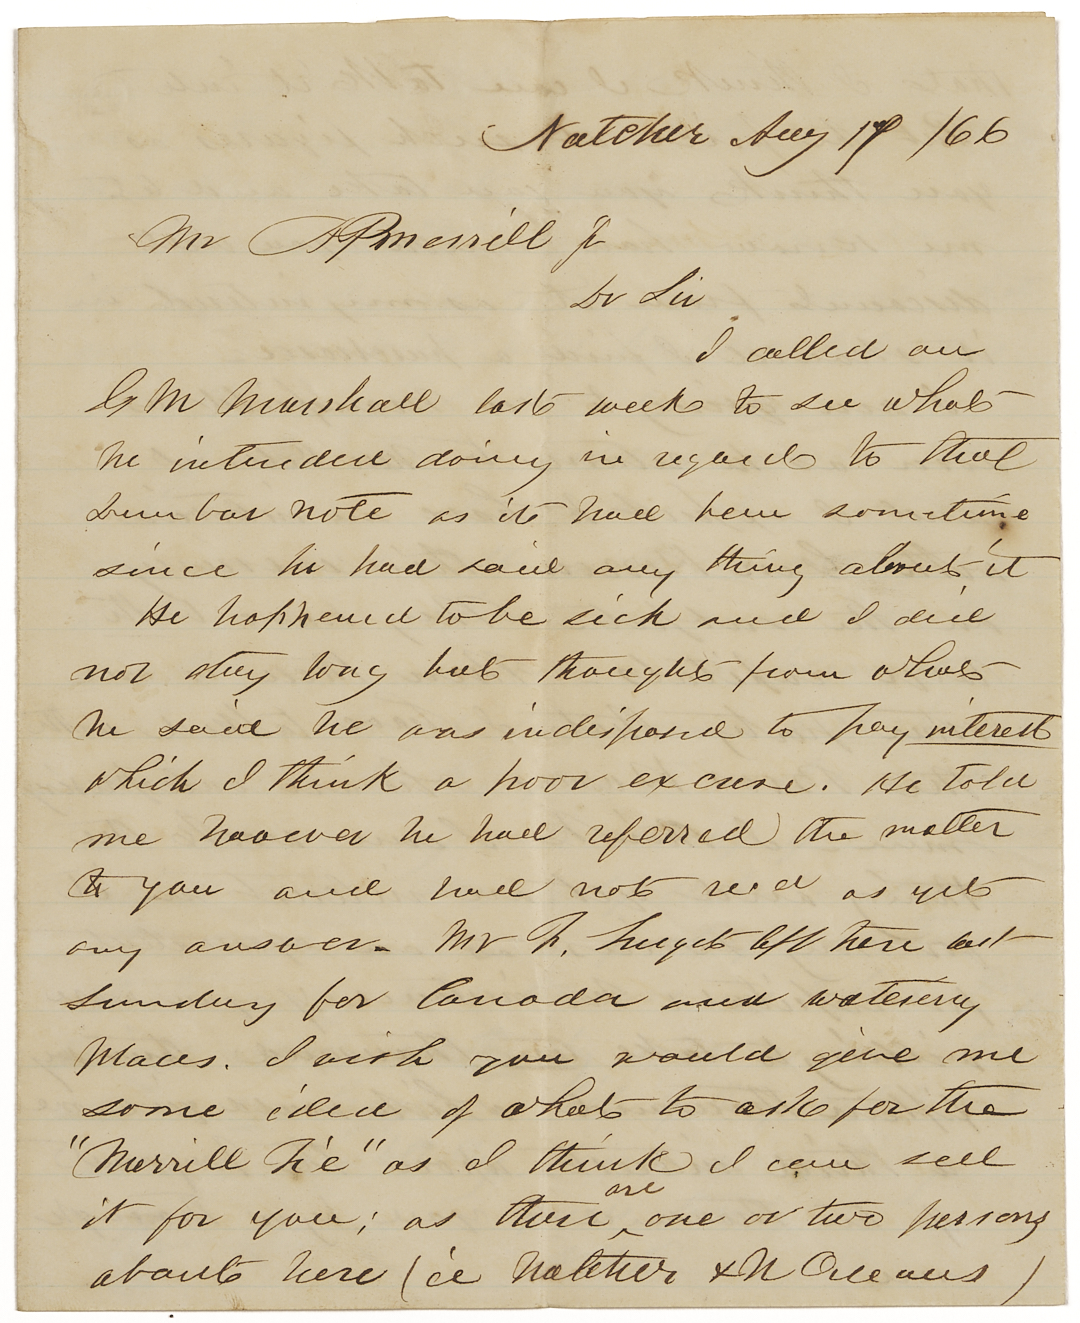 Natchez Aug 19 /66
Mr A P Merrill Jr
Dr Sir
I called on
G M Marshall last week to see what
he intended doing in regard to that
Dunbar note as it had been sometime
since he had said any thing about it
He happened to be sick and I did
not stay long but thought from what
he said he was indisposed to pay interest
which I think a poor excuse. He told
me however he had referred the matter
to you and had not recd as yet
any answer. Mr F. Surget left here last
Sunday for Canada and watering
places. I wish you would give me
some idea of what to ask for the
"Merrill Pl'e" as I think I can sell
it for you; as there are one or two persons
about here (ie Natchez & N Orleans)